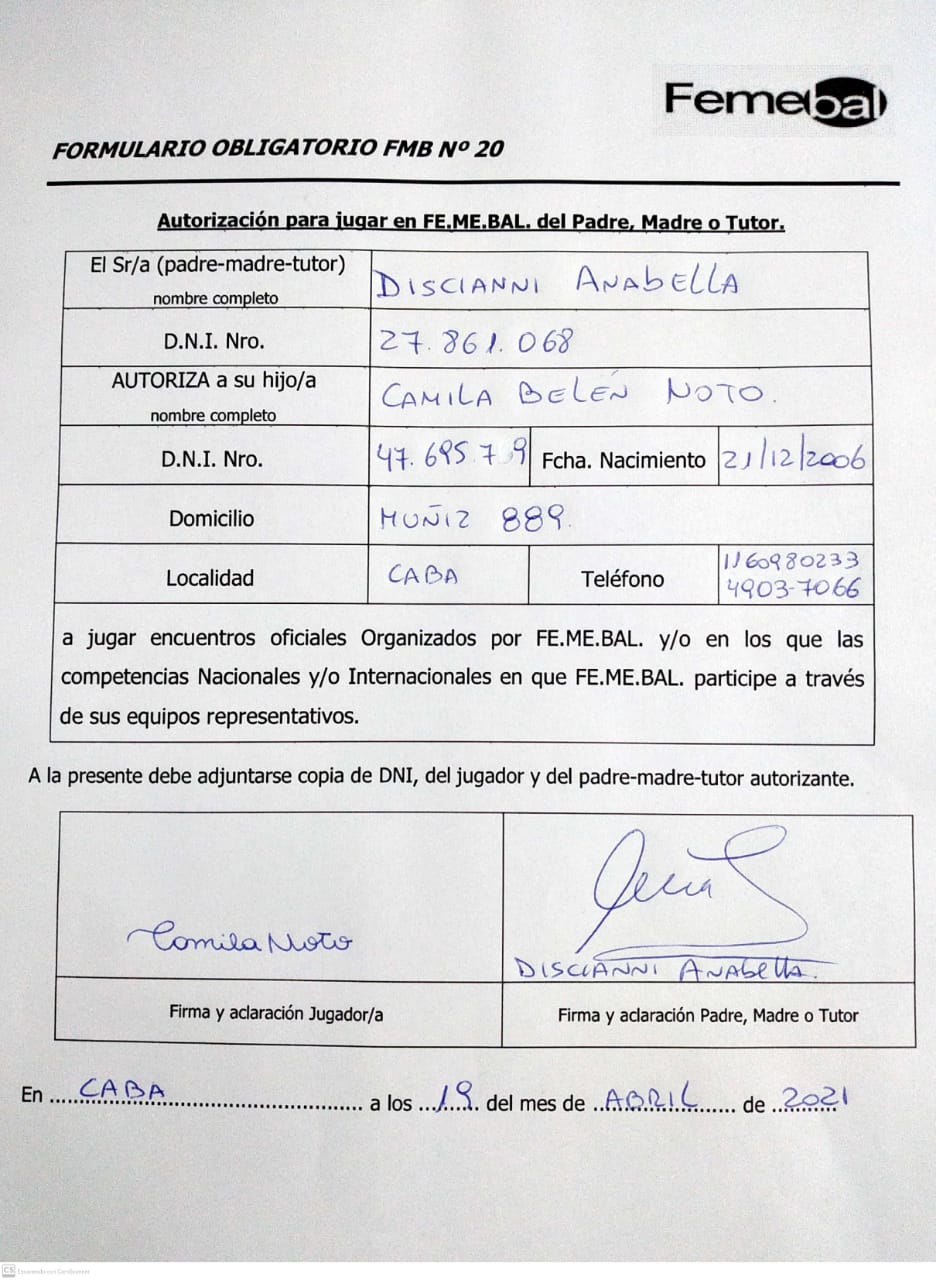 Femebal
FORMULARIO OBLIGATORIO FMB Nº 20
Autorización para jugar en FE.ME.BAL. del Padre, Madre o Tutor.
El Sr/a (padre-madre-tutor) DISCIANNI ANAbELLA
nombre completo
D.N.I. Nro. 27.861.068
AUTORIZA a su hijo/a CAMILA BELÉN NOTO.
nombre completo
D.N.I. Nro. 47.695.7 9 Fcha. Nacimiento 21/12/2006
Domicilio MUÑIZ 889.
Localidad CABA Teléfono 1160980233
4903-7066
a jugar encuentros oficiales Organizados por FE.ME.BAL. y/o en los que las
competencias Nacionales y/o Internacionales en que FE.ME.BAL. participe a través
de sus equipos representativos.
A la presente debe adjuntarse copia de DNI, del jugador y del padre-madre-tutor autorizante.
Camila Noto
DISCIANNI ANAbella.
Firma y aclaración Jugador/a Firma y aclaración Padre, Madre o Tutor
En CABA a los 19 del mes de ABRIL de 2021
CS Escaneado con CamScanner